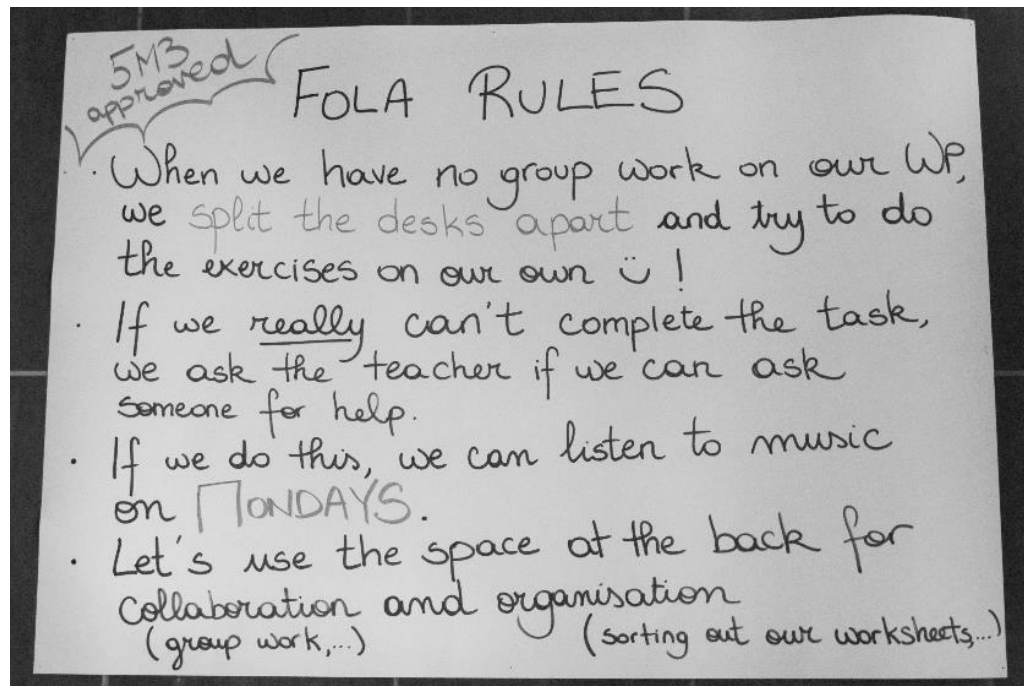 5M3
approved
FOLA RULES
· When we have no group work on our WP,
we split the desks apart and try to do
the exercises on our own ü !
· If we really can't complete the task,
we ask the teacher if we can ask
someone for help.
· If we do this, we can listen to music
on MONDAYS.
· Let's use the space at the back for
collaboration and organisation
(group work,...) (sorting out our worksheets,...)